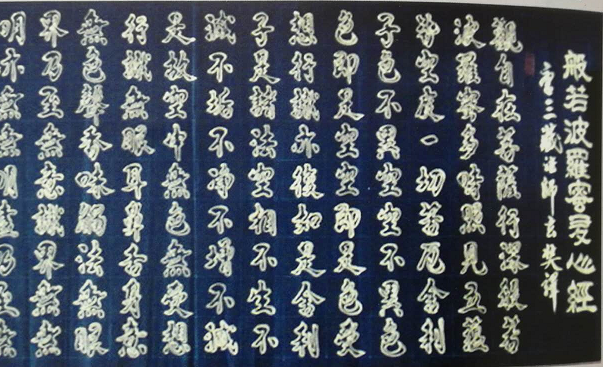 般若波羅蜜多心經
唐三藏法師玄奘譯
觀自在菩薩行深般若
波羅蜜多時照見五蘊
皆空度一切苦厄舍利
子色不異空空不異色
色即是空空即是色受
想行識亦復如是舍利
子是諸法空相不生不
滅不垢不淨不增不減
是故空中無色無受想
行識無眼耳鼻舌身意
無色聲香味觸法無眼
界乃至無意識界無無
明亦無無明盡乃至無